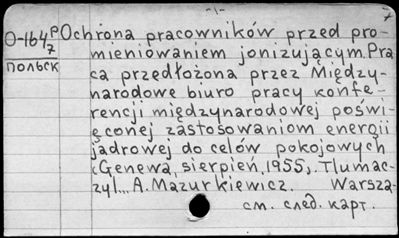 -1-
7
О-164/7 P Ochrona pracowników przed pro-
mieniowaniem jonizującym. Pra
польск
ca przedłożona przez Między-
narodowe biuro pracy konfe-
rencji międzynarodowej poświ-
ęconej zastosowaniom energii
jądrowej do celów pokojowych
(Genewa, sierpień, 1955). Tlumac-
zyl... A. Mazurkiewicz. Warsza-
см. след. карт.